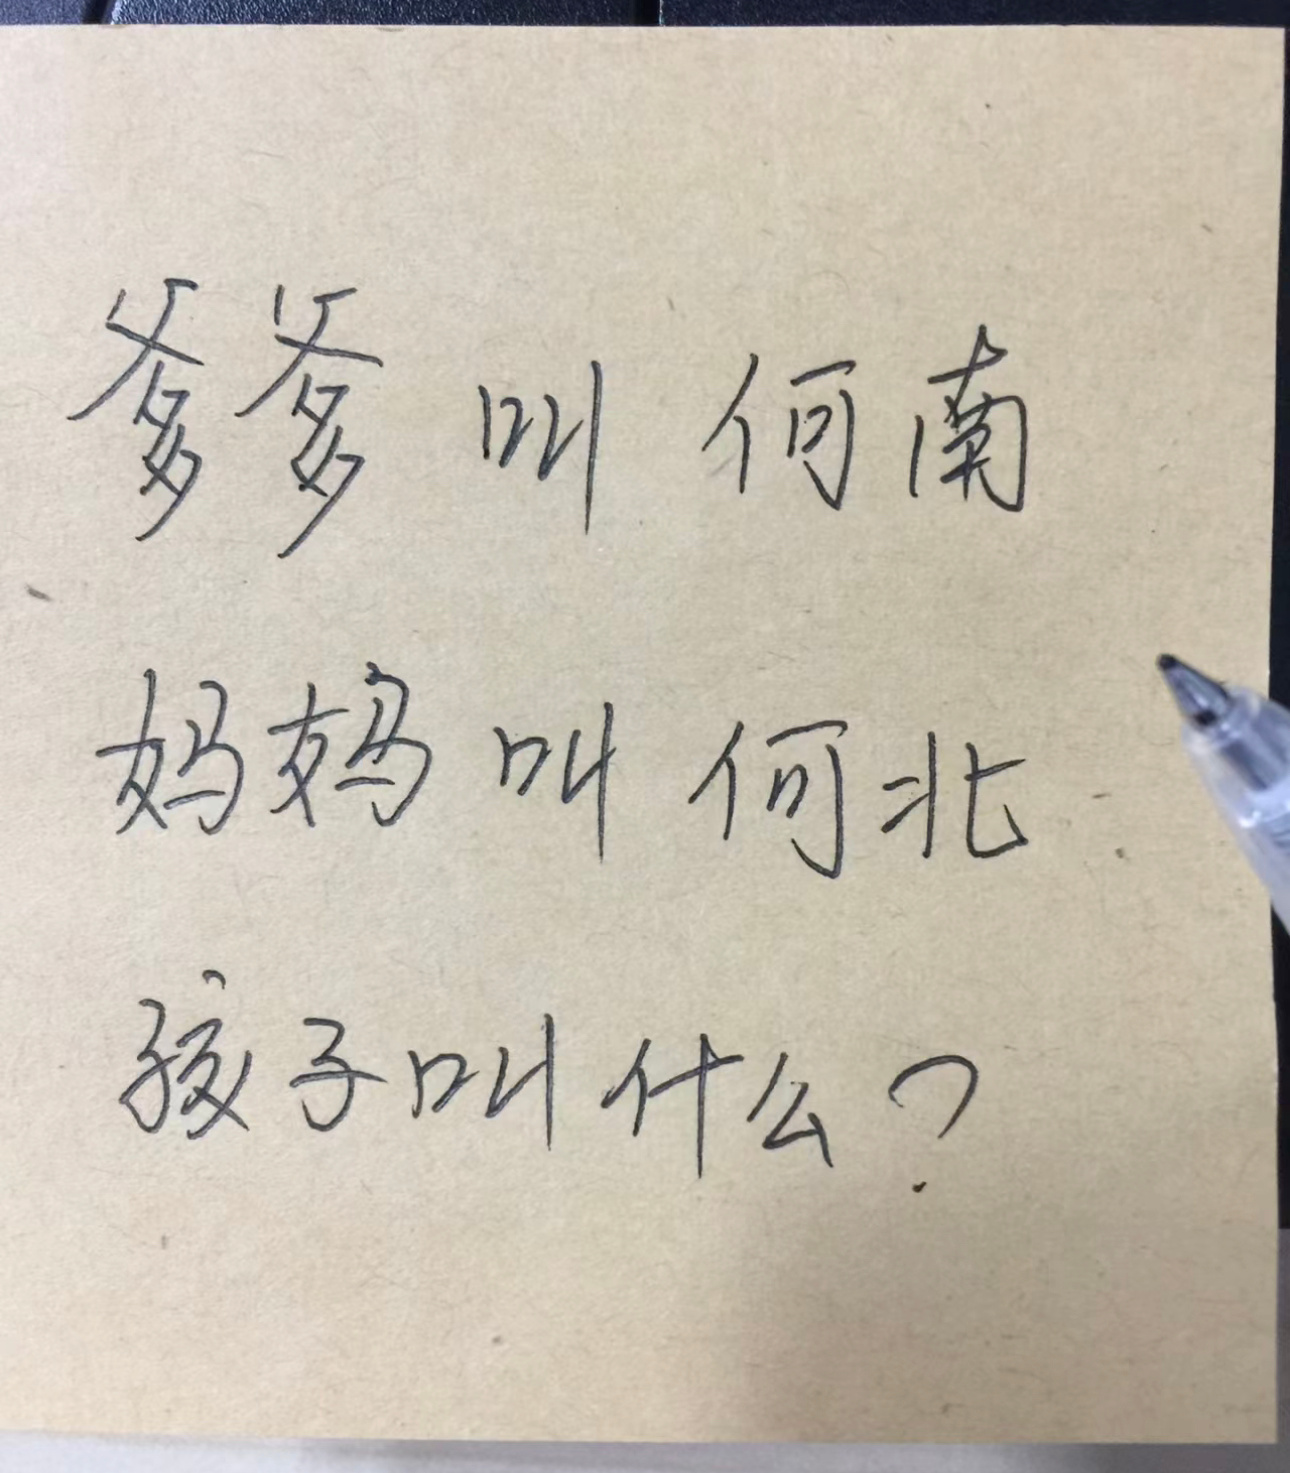 爹爹叫何南
妈妈叫何北
孩子叫什么?